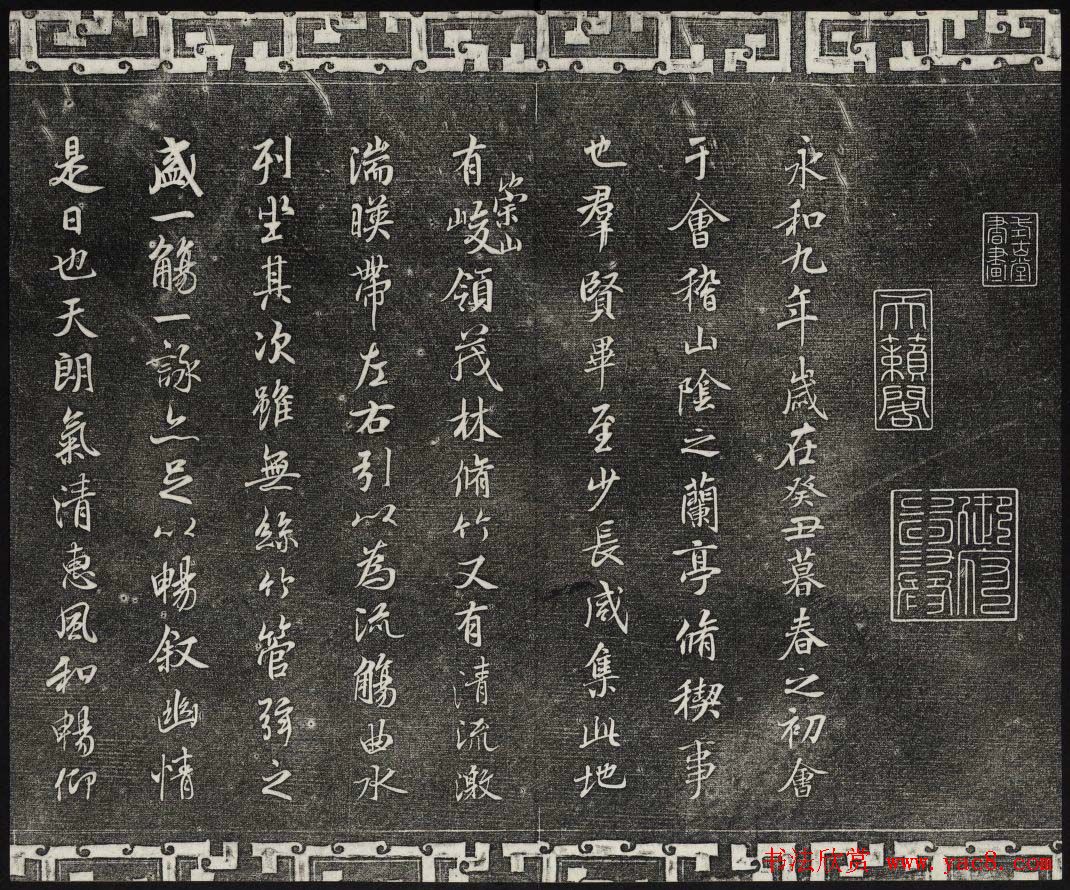 永和九年歲在癸丑暮春之初會
于會稽山陰之蘭亭脩稧事
也羣賢畢至少長咸集此地
有崇山峻領茂林脩竹又有清流激
湍暎帶左右引以為流觴曲水
列坐其次雖無絲竹管弦之
盛一觴一詠亦足以暢叙幽情
是日也天朗氣清惠風和暢仰
天籟閣
書畫
书法欣赏 www.yac8.com